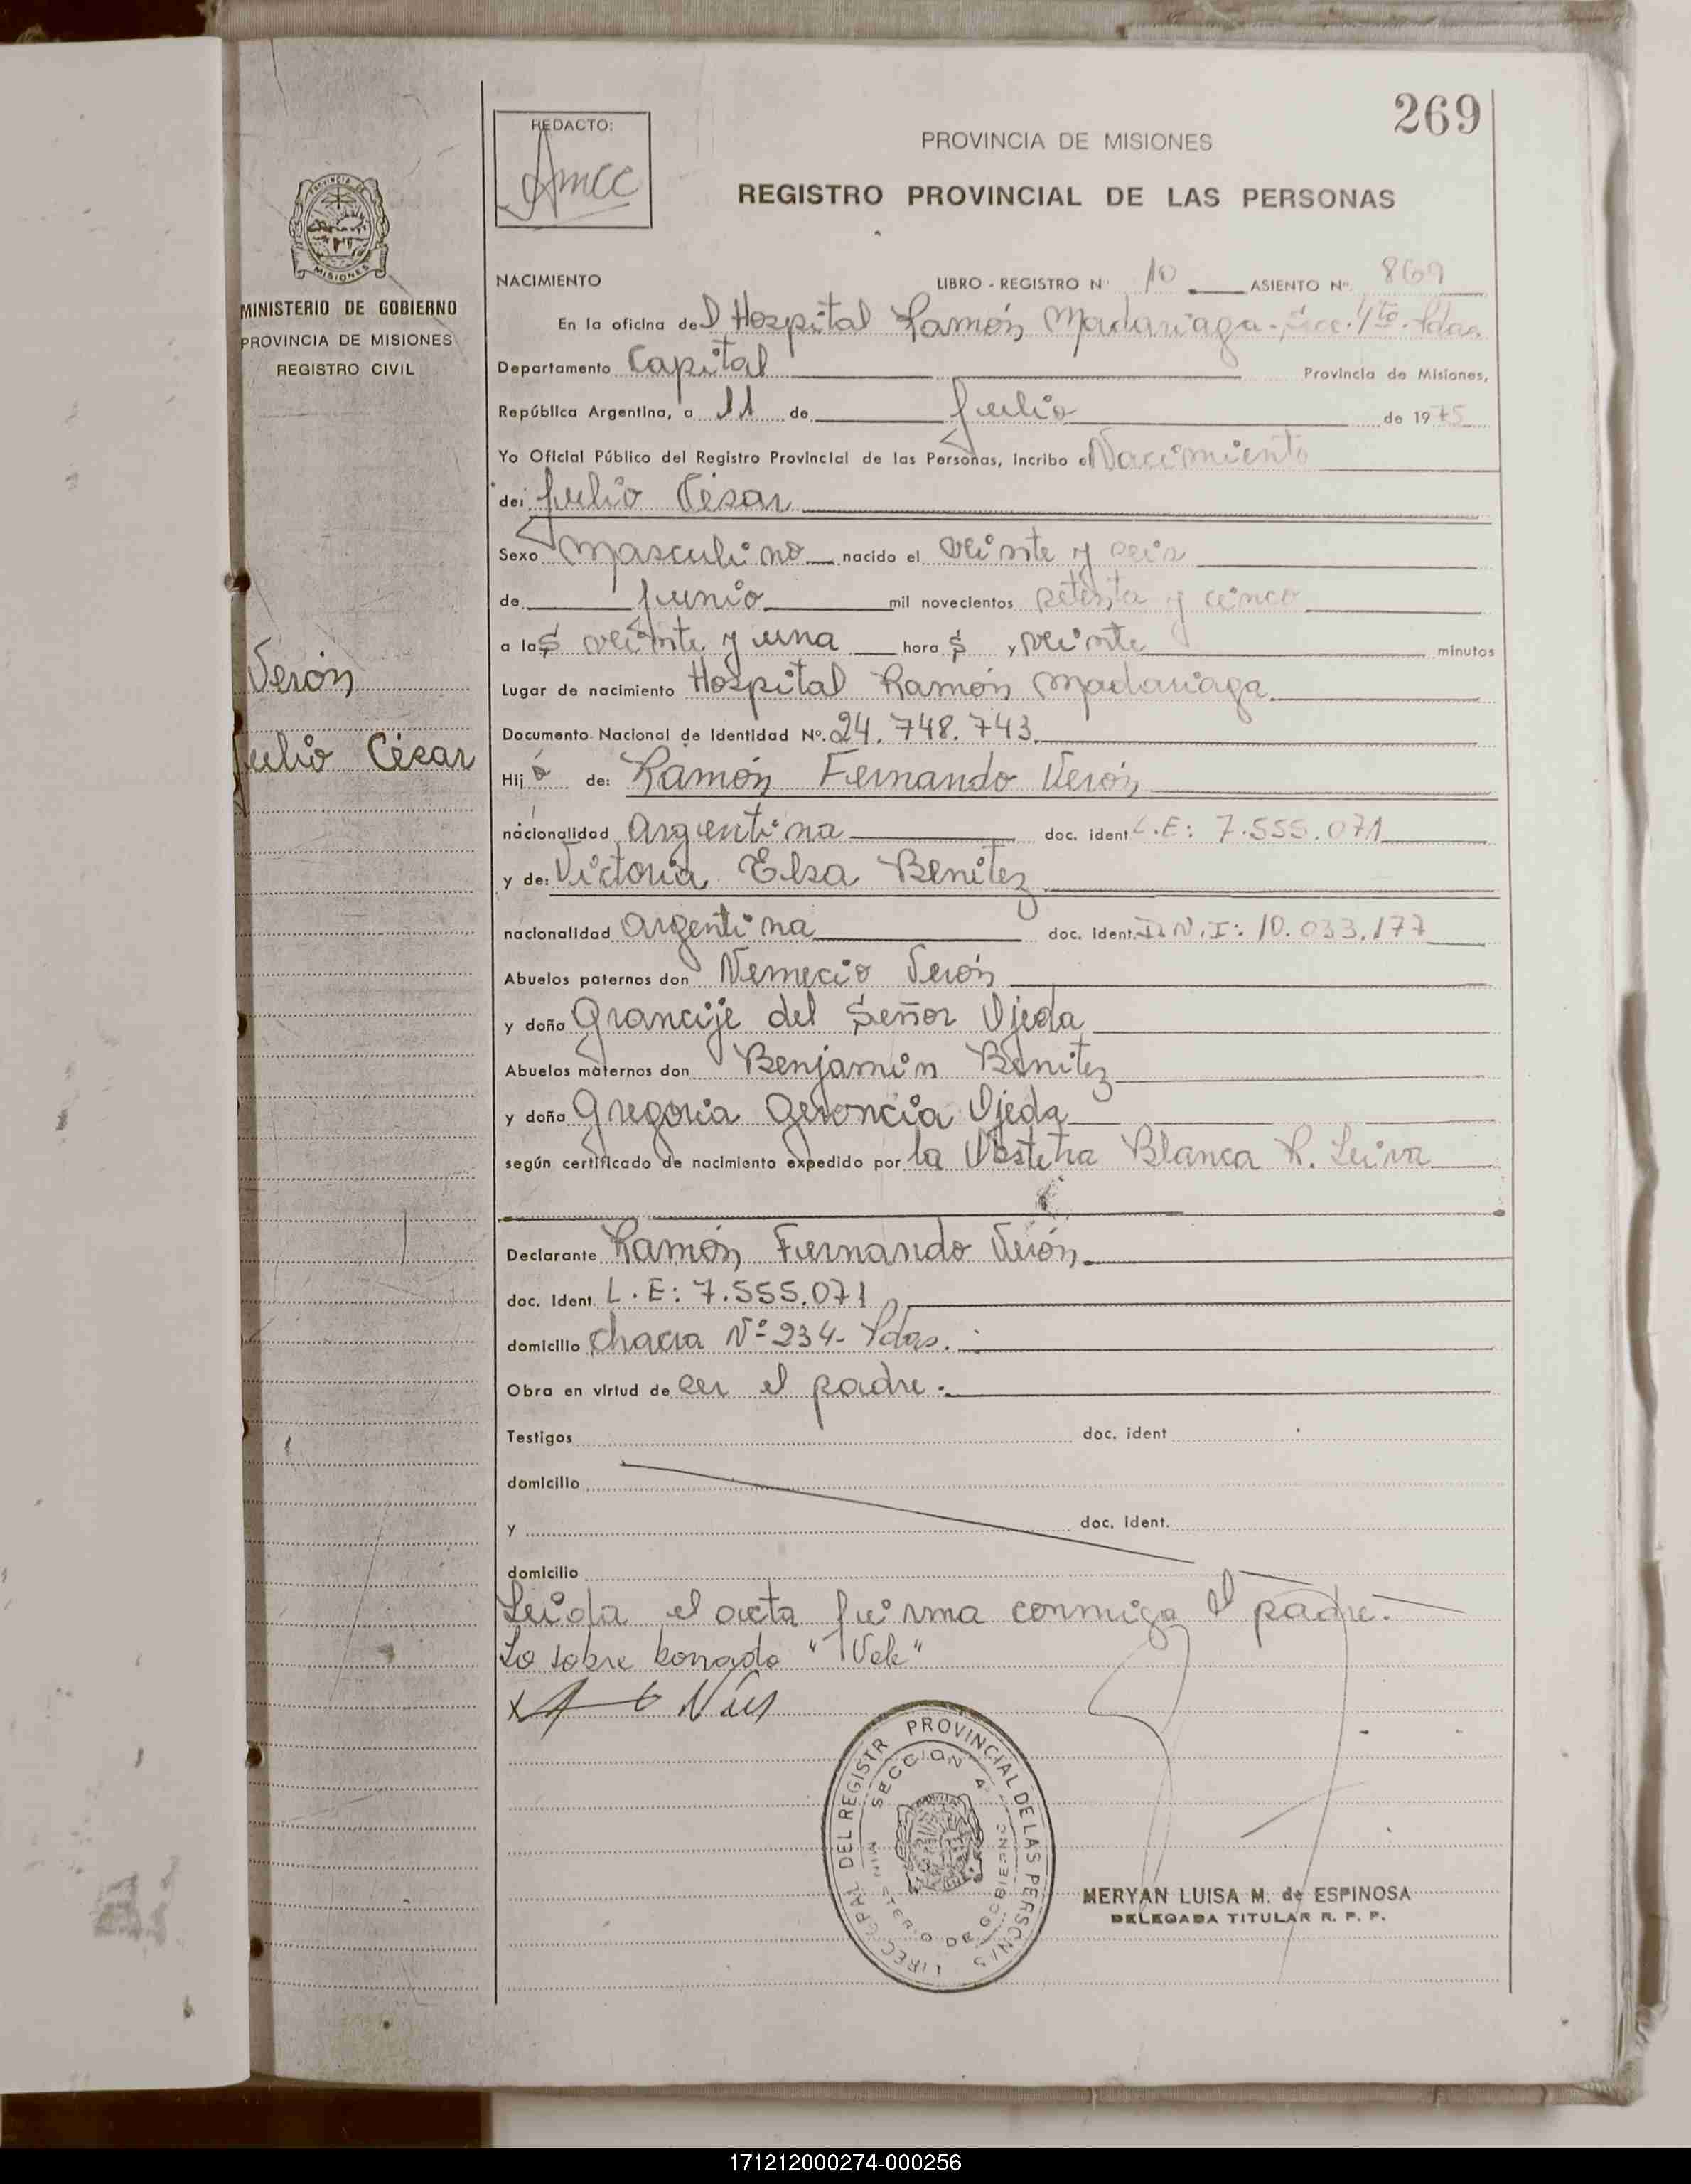 269
REDACTO:
Amcc
PROVINCIA DE MISIONES
REGISTRO PROVINCIAL DE LAS PERSONAS
MINISTERIO DE GOBIERNO
PROVINCIA DE MISIONES
REGISTRO CIVIL
NACIMIENTO LIBRO - REGISTRO Nº 10 ASIENTO Nº 869
En la oficina del Hospital Ramón Madariaga - Secc. 4ta. Pdas.
Departamento Capital Provincia de Misiones,
República Argentina, a 11 de Julio de 1975
Yo Oficial Público del Registro Provincial de las Personas, incribo el Nacimiento
de: Julio César
Sexo masculino nacido el veinte y seis
de Junio mil novecientos setenta y cinco
a las veinte y una horas y veinte minutos
Verón
Lugar de nacimiento Hospital Ramón Madariaga
Documento Nacional de Identidad Nº. 24.748.743.
Julio César
Hijo de: Ramón Fernando Verón
nacionalidad argentina doc. ident L.E: 7.555.071
y de: Victoria Elsa Benitez
nacionalidad argentina doc. ident. D.N.I: 10.033.177
Abuelos paternos don Nemecio Verón
y doña del Señor Ojeda
Abuelos maternos don Benjamin Benitez
y doña Gregoria Ojeda
según certificado de nacimiento expedido por la Obstetra Blanca R. Leiva
Declarante Ramón Fernando Verón
doc. Ident. L.E: 7.555.071
domicilio chacra Nº 234- Pdas.
Obra en virtud de ser el padre.
Testigos doc. ident
domicilio
y doc. ident.
domicilio
Leida el acta firma conmigo el padre.
Lo sobre borrado "Vale"
DIREC. GRAL DEL REGISTR PROVINCIAL DE LAS PERSONAS
SECCION 4ª
MINISTERIO DE GOBIERNO
MERYAN LUISA M. de ESPINOSA
DELEGADA TITULAR R. P. P.
171212000274-000256